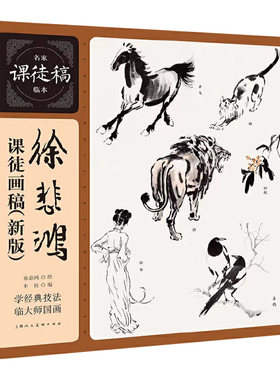 名家
课徒稿
临本
徐悲鸿
课徒画稿(新版)
徐悲鸿 绘
本社 编
学经典技法
临大师国画
上海人民美术出版社